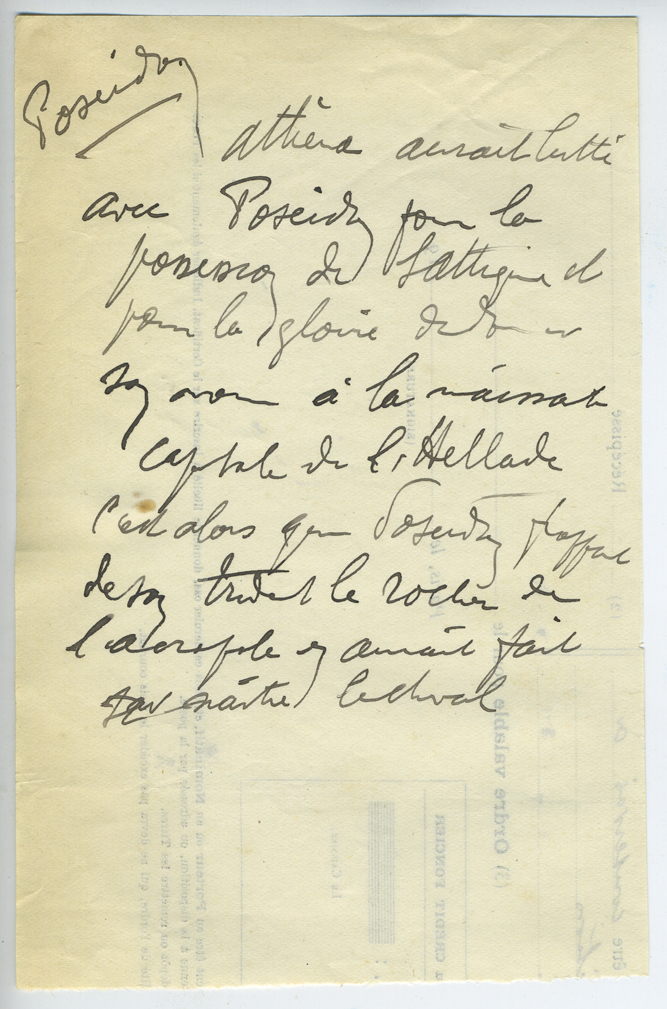 Poseidon
Athèna aurait lutté
avec Poseidon pour la
possession de l'Attique et
pour la gloire de donner
son nom à la naissante
capitale de l'Hellade
C'est alors que Poseidon frappant
de son trident le rocher de
l'acropole en aurait fait
naître le cheval